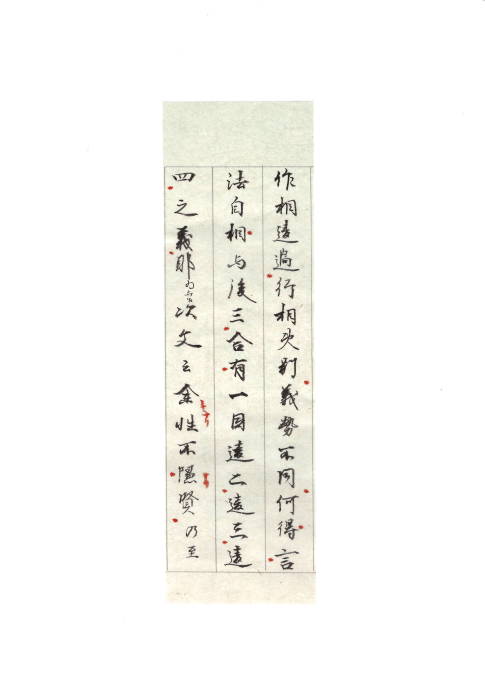 作相違過行相別義勢不同何得言
法自相与後三合有一因違二違三違
四之義耶次文云余性不隠賢乃至